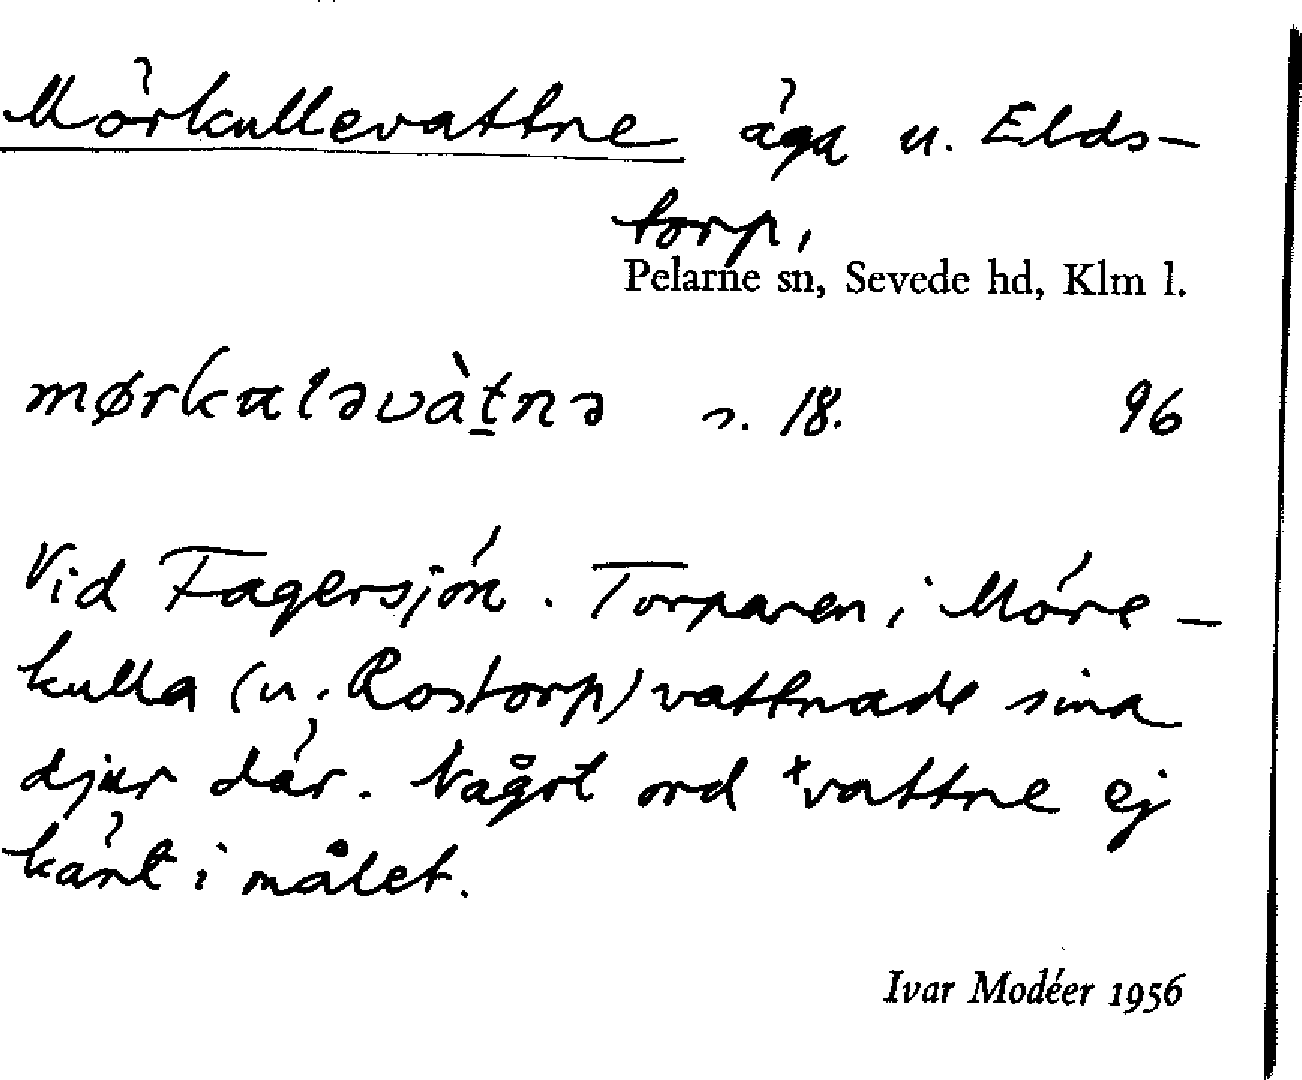 Mörkullevattne äga u. Elds-
torp,
Pelarne sn, Sevede hd, Klm l.
mørkuləvàt̠nə s. 18. 96
Vid Fagersjön. Torparen i Möre-
kulla (u. Rostorp) vattnade sina
djur där. Något ord +vattne ej
känt i målet.
Ivar Modéer 1956